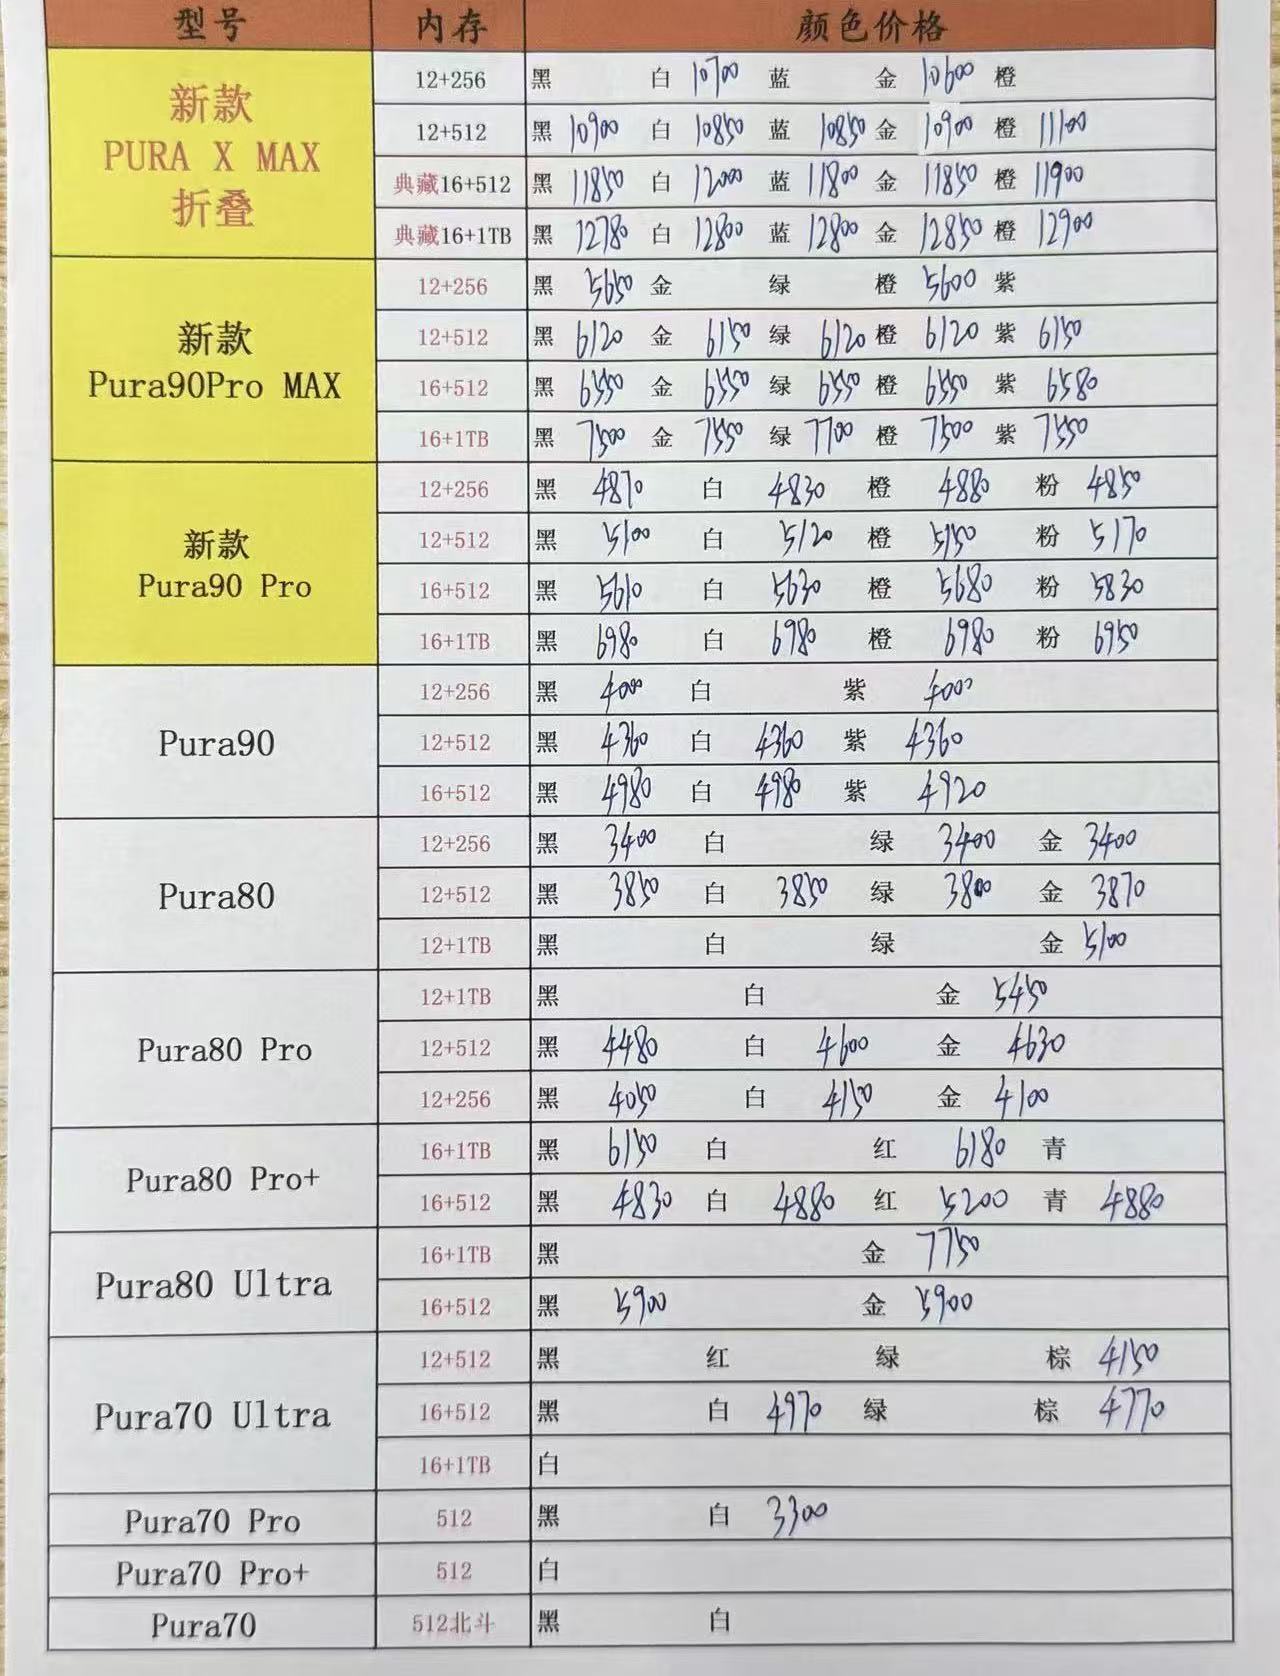 型号 内存 颜色价格
新款 PURA X MAX 折叠
12+256 黑 白 10700 蓝 金 10600 橙
12+512 黑 10900 白 10850 蓝 10850 金 10900 橙 11100
典藏16+512 黑 11850 白 12000 蓝 11800 金 11850 橙 11900
典藏16+1TB 黑 12780 白 12800 蓝 12800 金 12850 橙 12900
新款 Pura90Pro MAX
12+256 黑 5650 金 绿 橙 5600 紫
12+512 黑 6120 金 6150 绿 6120 橙 6120 紫 6150
16+512 黑 6550 金 6550 绿 6550 橙 6550 紫 6580
16+1TB 黑 7500 金 7550 绿 7700 橙 7500 紫 7550
新款 Pura90 Pro
12+256 黑 4870 白 4830 橙 4880 粉 4850
12+512 黑 5100 白 5120 橙 5150 粉 5170
16+512 黑 5610 白 5630 橙 5680 粉 5830
16+1TB 黑 6980 白 6980 橙 6980 粉 6950
Pura90
12+256 黑 4000 白 紫 4000
12+512 黑 4360 白 4360 紫 4360
16+512 黑 4980 白 4980 紫 4920
Pura80
12+256 黑 3400 白 绿 3400 金 3400
12+512 黑 3850 白 3850 绿 3800 金 3870
12+1TB 黑 白 绿 金 5100
Pura80 Pro
12+1TB 黑 白 金 5450
12+512 黑 4480 白 4600 金 4630
12+256 黑 4050 白 4150 金 4100
Pura80 Pro+
16+1TB 黑 6150 白 红 6180 青
16+512 黑 4830 白 4880 红 5200 青 4880
Pura80 Ultra
16+1TB 黑 金 7750
16+512 黑 5900 金 5900
Pura70 Ultra
12+512 黑 红 绿 棕 4150
16+512 黑 白 4970 绿 棕 4770
16+1TB 白
Pura70 Pro 512 黑 白 3300
Pura70 Pro+ 512 白
Pura70 512北斗 黑 白